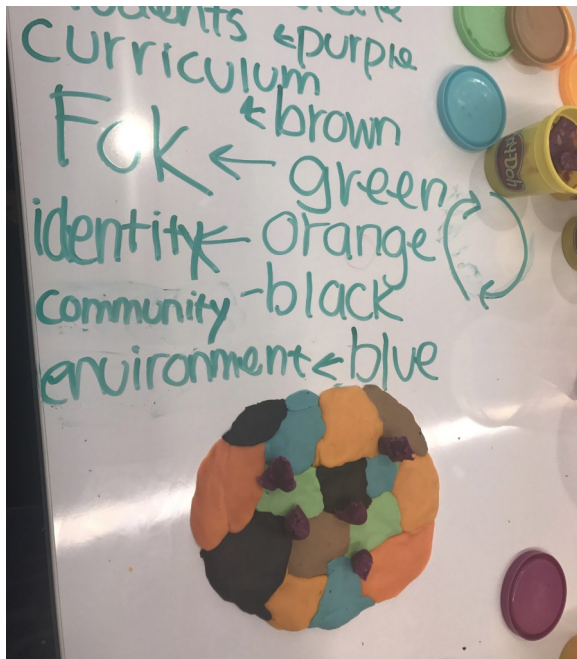 students
curriculum ← purple
FoK ← brown
← green
identity ← orange
community - black
environment ← blue
Play-Doh